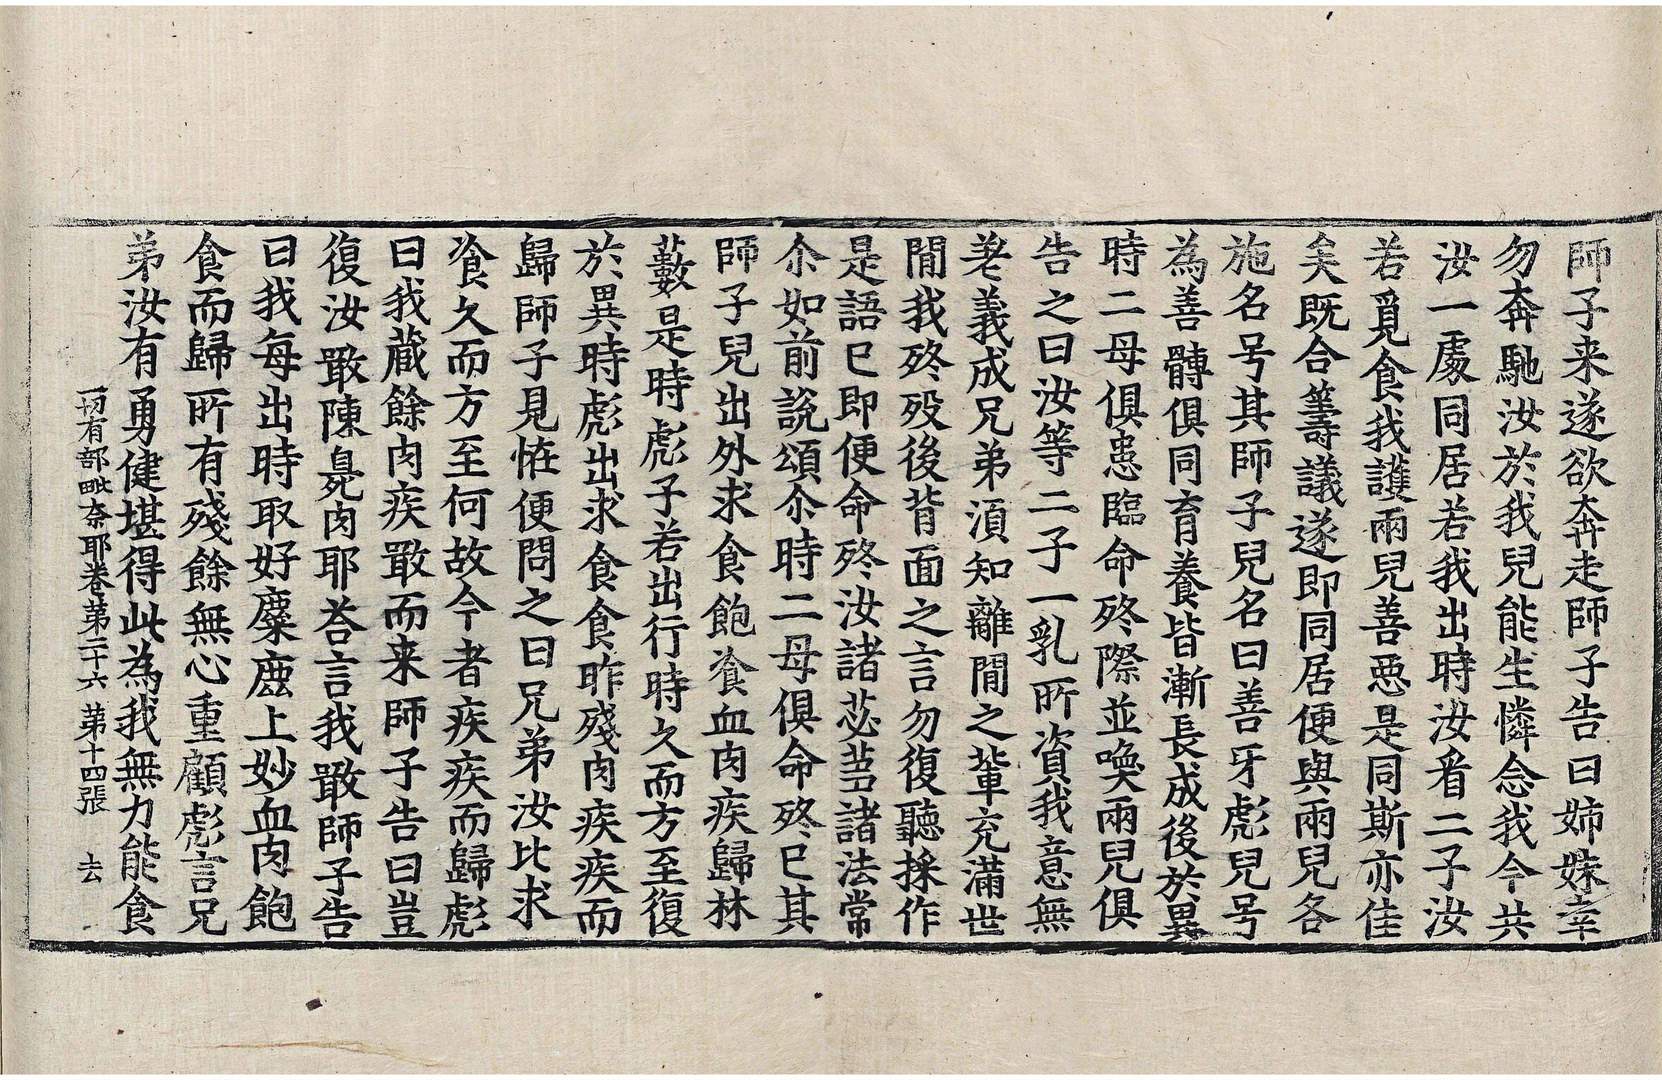 師子来遂欲奔走師子告曰姉妹幸
勿奔馳汝於我兒能生憐念我今共
汝一處同居若我出時汝看二子汝
若覓食我護兩兒善惡是同斯亦佳
矣既合籌議遂即同居便與兩兒各
施名号其師子兒名曰善牙彪兒号
為善髆俱同育養皆漸長成後於異
時二母俱患臨命終際並喚兩兒俱
告之曰汝等二子一乳所資我意無
差義成兄弟須知離間之輩充滿世
間我終殁後背面之言勿復聽採作
是語已即便命終汝諸苾芻諸法常
尒如前說頌尒時二母俱命終已其
師子兒出外求食飽飡血肉疾歸林
藪是時彪子若出行時久而方至復
於異時彪出求食食昨殘肉疾疾而
歸師子見恠便問之曰兄弟汝比求
飡久而方至何故今者疾疾而歸彪
曰我藏餘肉疾噉而来師子告曰豈
復汝噉陳臰肉耶荅言我噉師子告
曰我每出時取好麋鹿上妙血肉飽
食而歸所有殘餘無心重顧彪言兄
弟汝有勇健堪得此為我無力能食
一切有部毗奈耶卷第二十六 第十四張 去